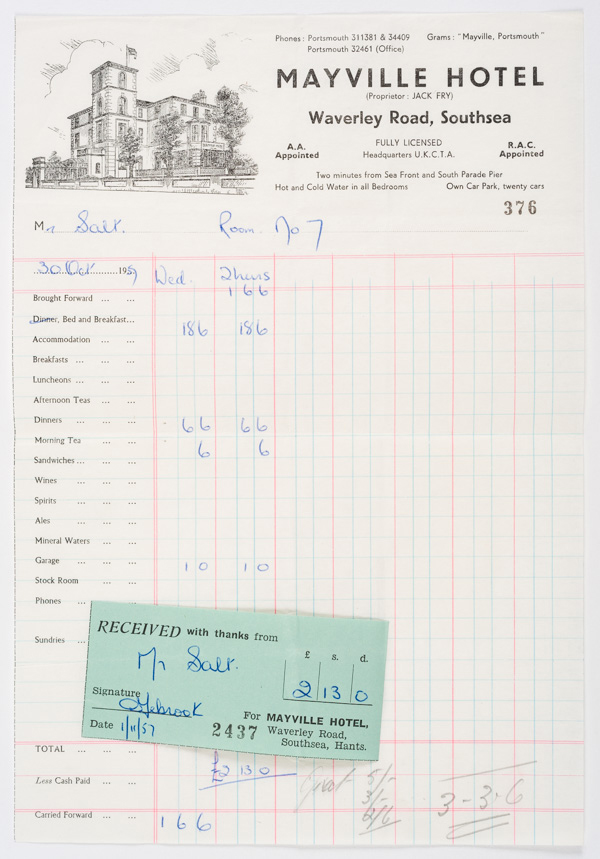 Phones: Portsmouth 311381 & 34409 Grams: "Mayville, Portsmouth"
Portsmouth 32461 (Office)
MAYVILLE HOTEL
(Proprietor: JACK FRY)
Waverley Road, Southsea
A.A. Appointed
FULLY LICENSED
Headquarters U.K.C.T.A.
R.A.C. Appointed
Two minutes from Sea Front and South Parade Pier
Hot and Cold Water in all Bedrooms Own Car Park, twenty cars
376
Mr Salt. Room No 7
30 Oct 1957 Wed. Thurs
Brought Forward ... ... 1 6 6
Dinner, Bed and Breakfast... 18 6 18 6
Accommodation ... ...
Breakfasts ... ... ...
Luncheons ... ... ...
Afternoon Teas ... ...
Dinners ... ... ... 6 6 6 6
Morning Tea ... ... 6 6
Sandwiches ... ... ...
Wines ... ... ...
Spirits ... ... ...
Ales ... ... ...
Mineral Waters ... ...
Garage ... ... ... 1 0 1 0
Stock Room ... ...
Phones ... ...
Sundries ...
RECEIVED with thanks from
Mr Salt.
£ s. d.
2 13 0
Signature
Date 1/11/57
2437
For MAYVILLE HOTEL,
Waverley Road,
Southsea, Hants.
TOTAL ... ... ... £2 13 0
Less Cash Paid ... ...
5/-
3/-
2/6
3-3-6
Carried Forward ... ... 1 6 6